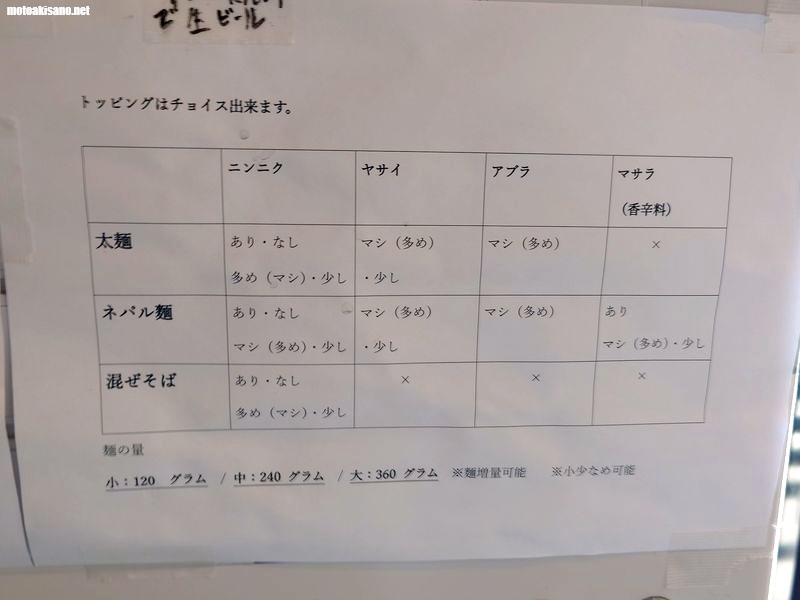 motoakisano.net
で生ビール
トッピングはチョイス出来ます。
ニンニク ヤサイ アブラ マサラ
（香辛料）
太麺 あり・なし マシ（多め） マシ（多め） ×
多め（マシ）・少し ・少し
ネパル麺 あり・なし マシ（多め） マシ（多め） あり
マシ（多め）・少し ・少し マシ（多め）・少し
混ぜそば あり・なし × × ×
多め（マシ）・少し
麺の量
小：120 グラム / 中：240 グラム / 大：360 グラム ※麺増量可能 ※小少なめ可能